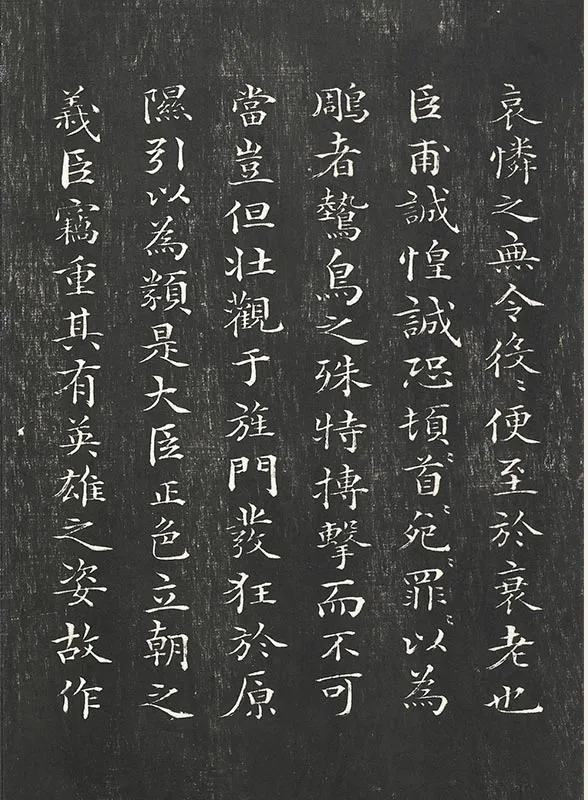 哀憐之無令後〻便至於衰老也
臣甫誠惶誠恐頓〻首〻死〻罪〻以為
鵰者鷙鳥之殊特搏擊而不可
當豈但壯觀于旌門發狂於原
隰引以為類是大臣正色立朝之
義臣竊重其有英雄之姿故作